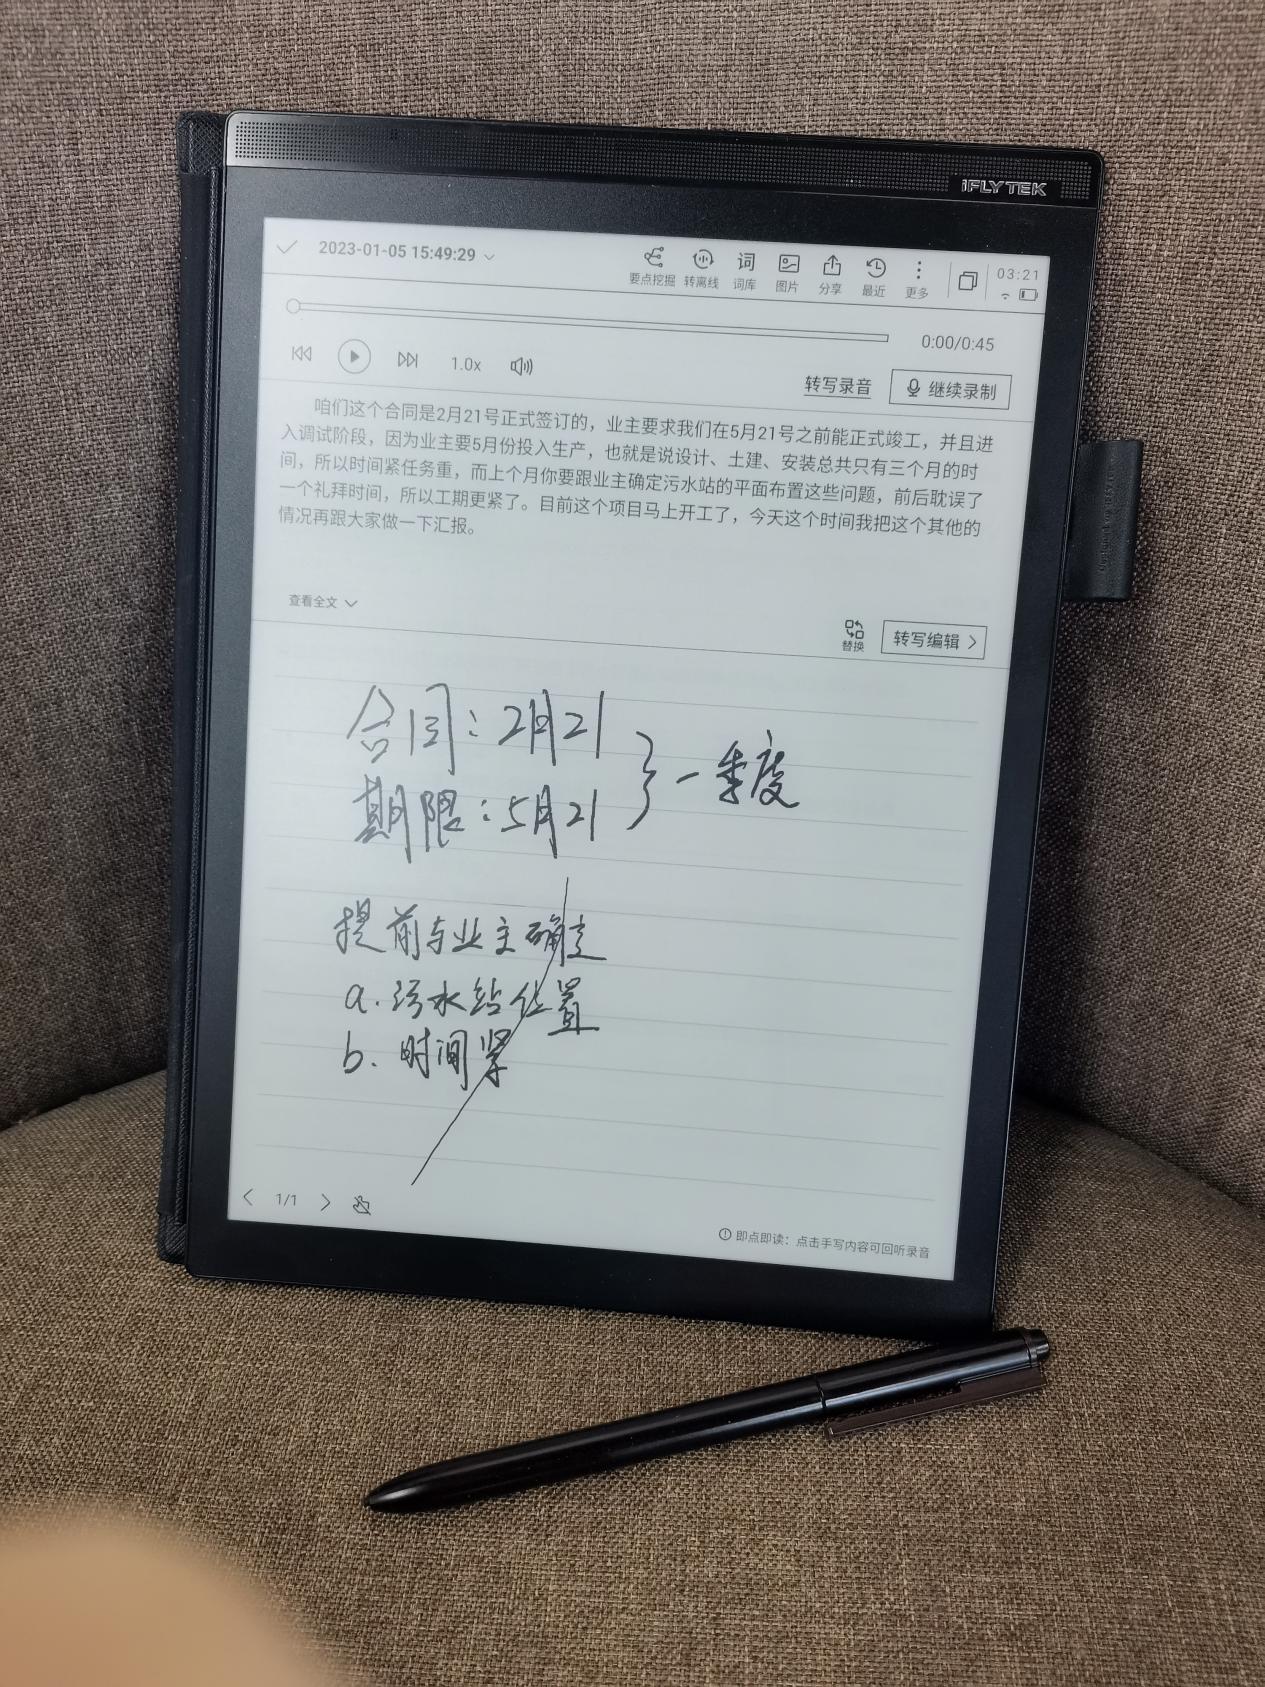 iFLYTEK
2023-01-05 15:49:29
要点挖掘 转离线 词库 图片 分享 最近 更多
03:21
0:00/0:45
1.0x
转写录音 继续录制
咱们这个合同是2月21号正式签订的，业主要求我们在5月21号之前能正式竣工，并且进
入调试阶段，因为业主要5月份投入生产，也就是说设计、土建、安装总共只有三个月的时
间，所以时间紧任务重，而上个月你要跟业主确定污水站的平面布置这些问题，前后耽误了
一个礼拜时间，所以工期更紧了。目前这个项目马上开工了，今天这个时间我把这个其他的
情况再跟大家做一下汇报。
查看全文
替换 转写编辑
合同：2月21
期限：5月21
一季度
提前与业主确定
a. 污水站位置
b. 时间紧
1/1
即点即读：点击手写内容可回听录音